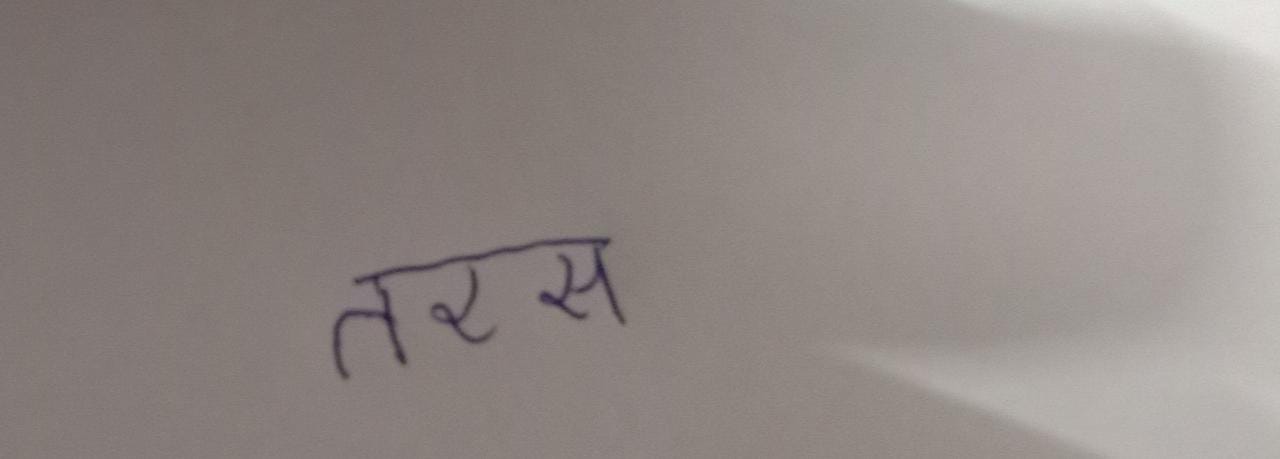 तरस